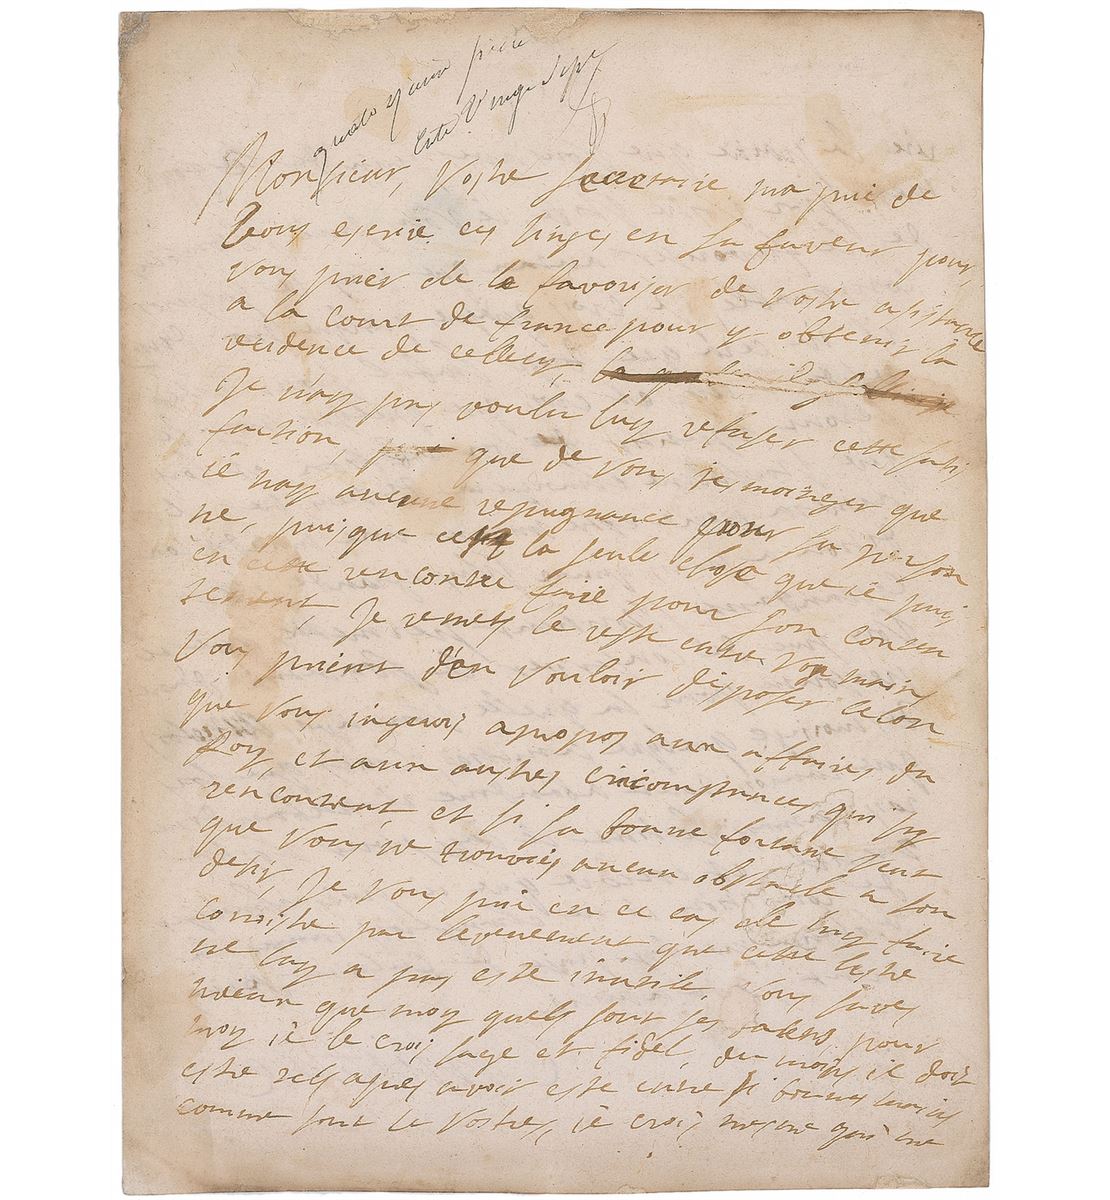 Monsieur, Vostre secretaire ma prié de
Vous escrire ces lignes en sa faveur pour
vous prier de le favoriser de vostre assistance
a la court de france pour y obtenir la
residence de cellecy,
Je nay pas voulu luy refuser cette satis
faction, que de vous tesmoigner que
ie nay aucune repugnance pour sa person
ne, puisque cest la seule chose que ie puis
en cette rencontre faire pour son conten
tement, Je remets le reste entre vos mains
Vous priant d'en vouloir disposer celon
que vous iugerés apropos aux affaires du
Roy, et aux autres circomstances qui sy
rencontrent, et si sa bonne fortune veut
que vous ne trouviés aucun obstacle a son
desir, Je vous prie en ce cas de luy faire
connoistre par levenement que cette lestre
ne luy a pas esté inutile, vous savés
mieux que moy quels sont ses talens pour
moy ie le croi sage et fidel, du moins il doit
estre tel apres avoir esté entre si bonnes mains
comme sont le Vostres, ie crois mesme qui ne